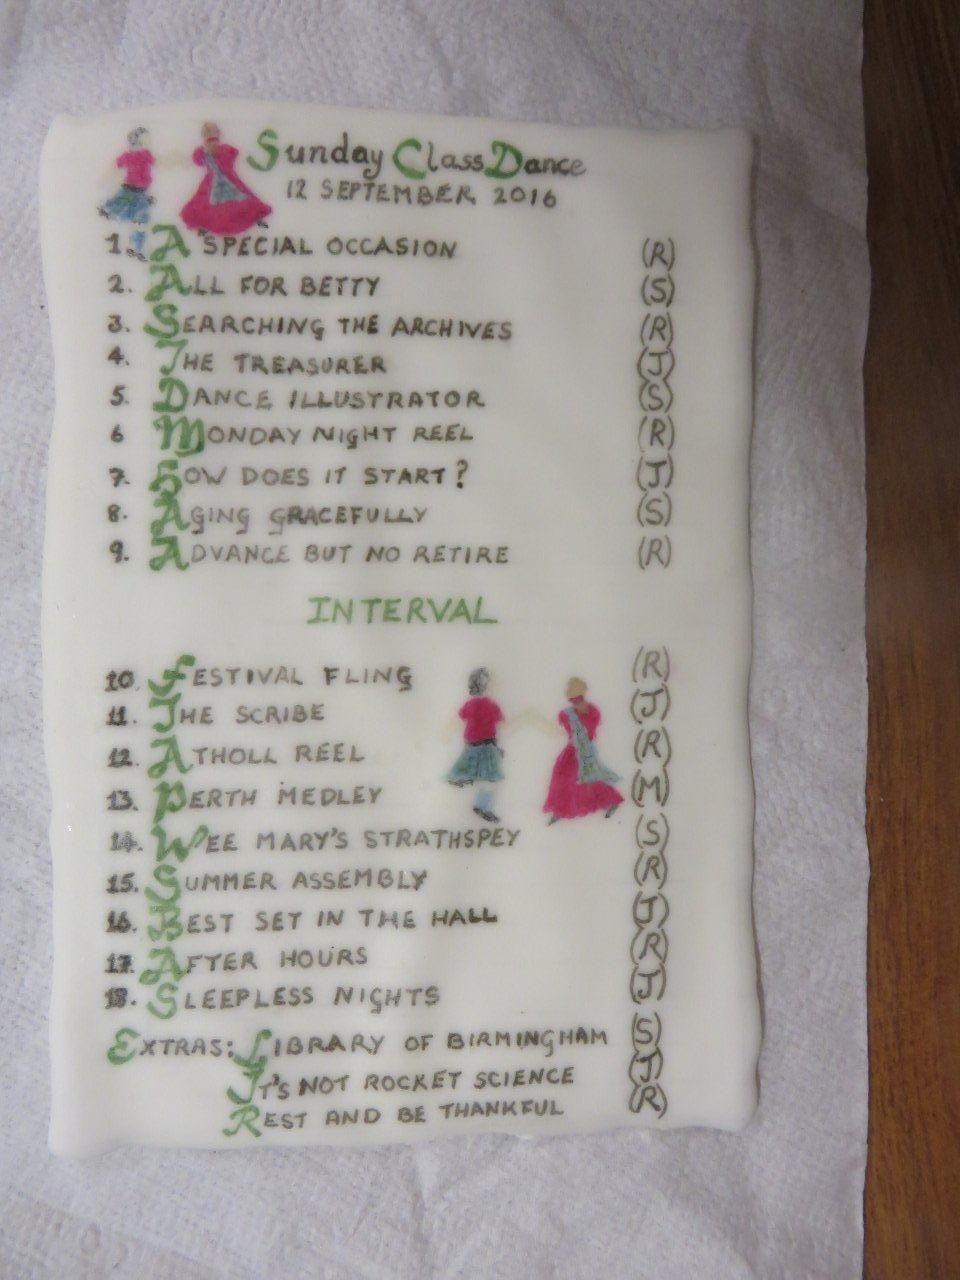 Sunday Class Dance
12 SEPTEMBER 2016
1. A SPECIAL OCCASION (R)
2. ALL FOR BETTY (S)
3. SEARCHING THE ARCHIVES (R)
4. THE TREASURER (J)
5. DANCE ILLUSTRATOR (S)
6 MONDAY NIGHT REEL (R)
7. HOW DOES IT START? (J)
8. AGING GRACEFULLY (S)
9. ADVANCE BUT NO RETIRE (R)
INTERVAL
10. FESTIVAL FLING (R)
11. THE SCRIBE (J)
12. ATHOLL REEL (R)
13. PERTH MEDLEY (M)
14. WEE MARY'S STRATHSPEY (S)
15. SUMMER ASSEMBLY (R)
16. BEST SET IN THE HALL (J)
17. AFTER HOURS (R)
18. SLEEPLESS NIGHTS (J)
EXTRAS: LIBRARY OF BIRMINGHAM (S)
IT'S NOT ROCKET SCIENCE (J)
REST AND BE THANKFUL (R)